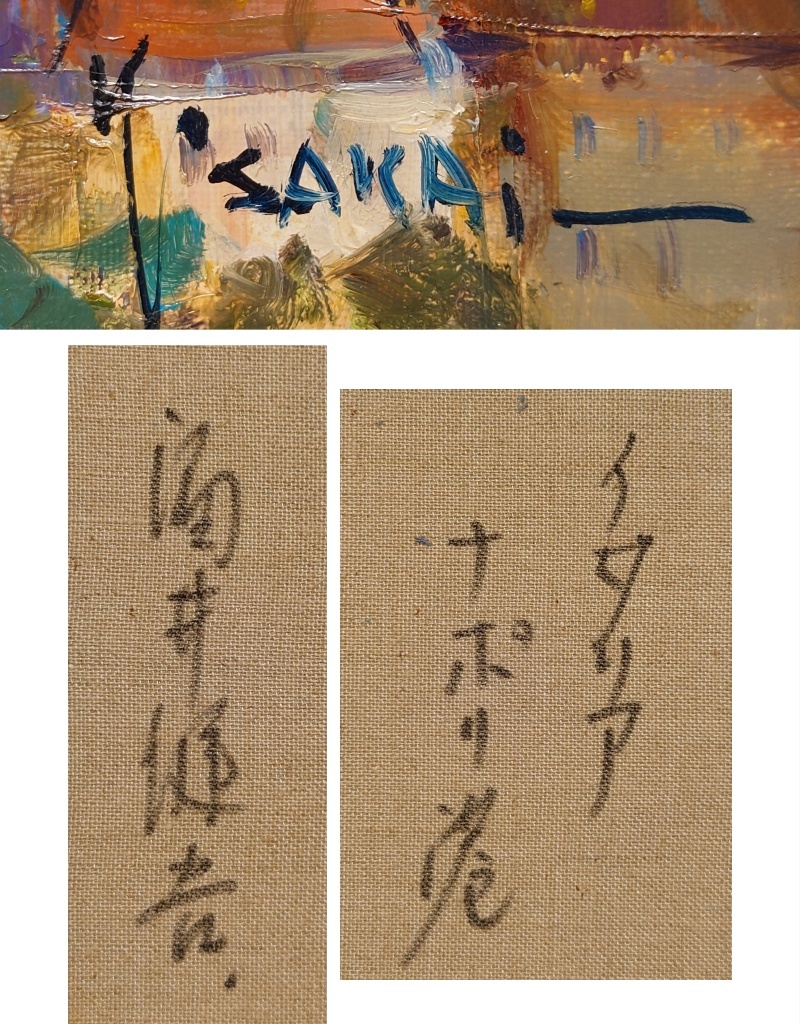 K. SAKAi
酒井健吉.
イタリア
ナポリ港